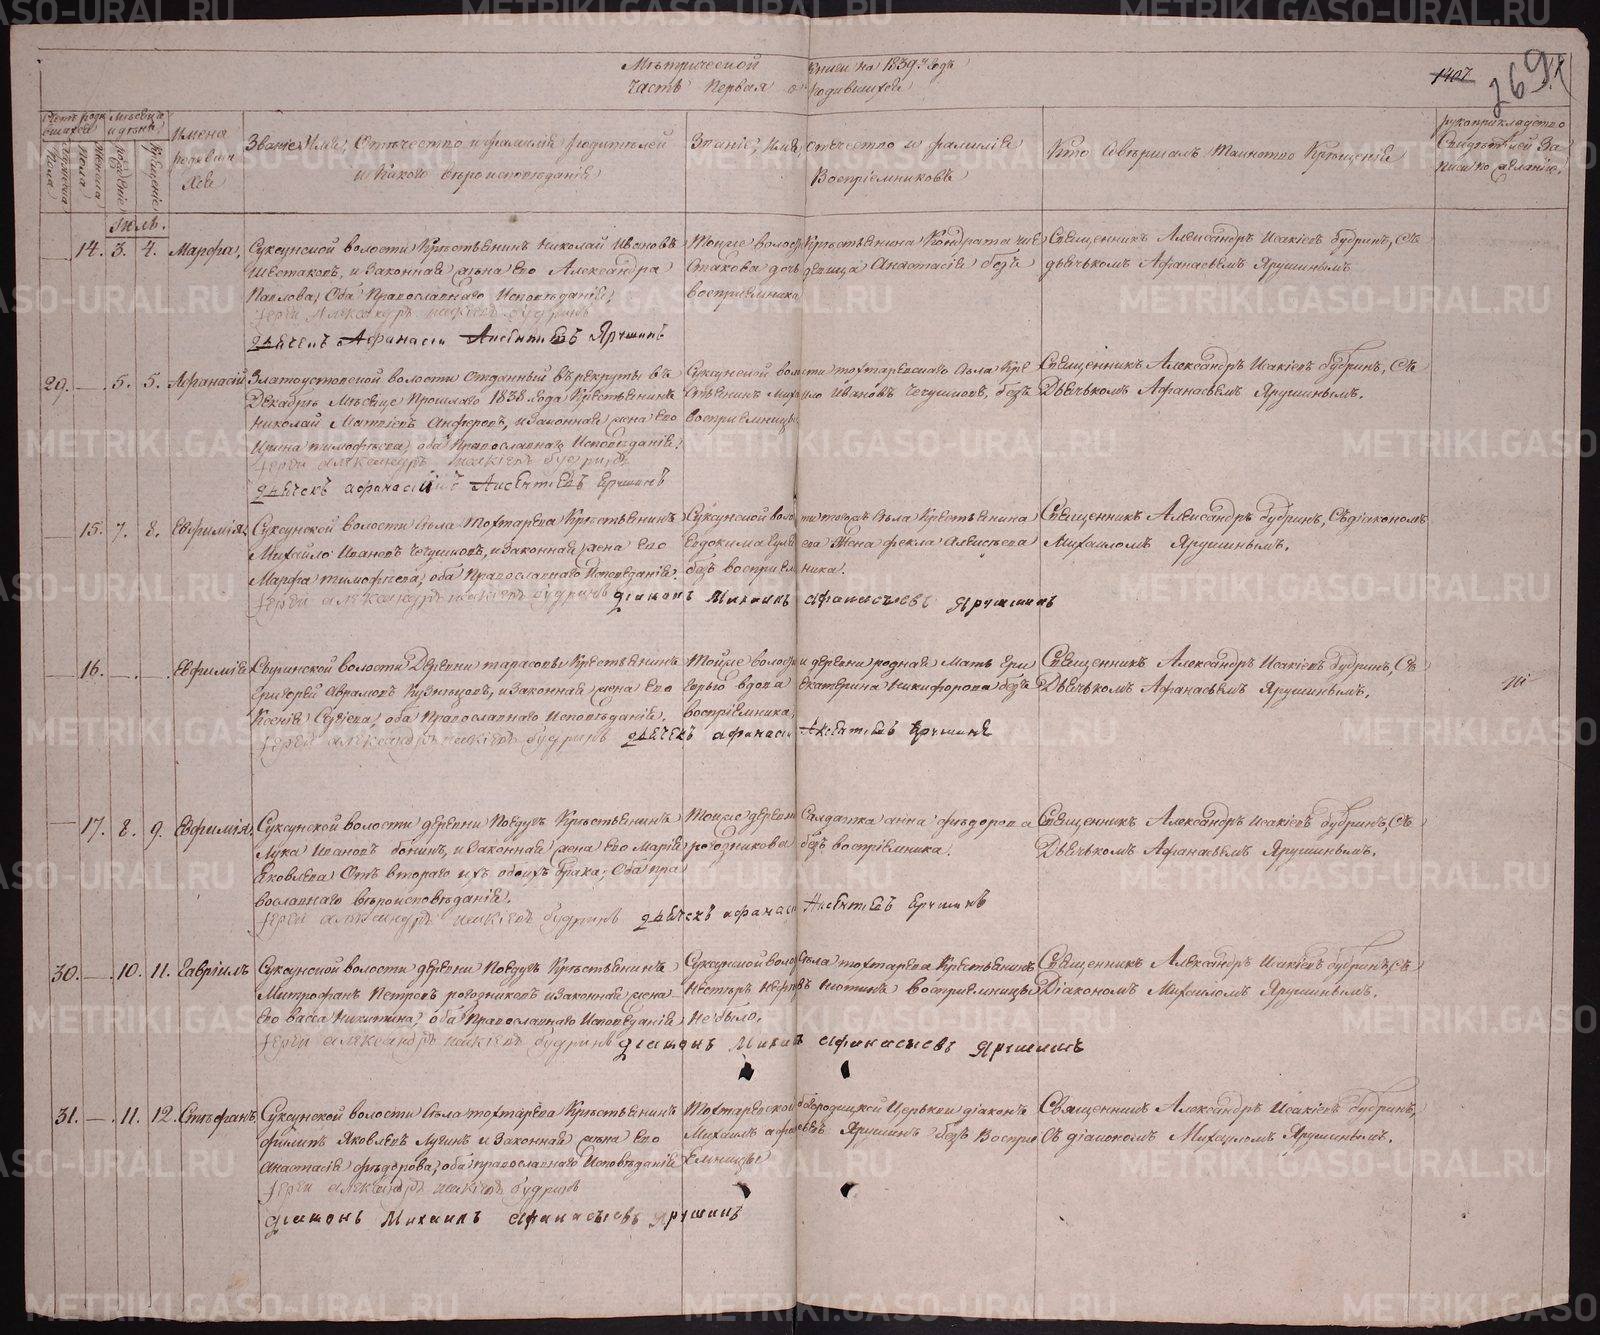 Метрической книги на 1839й годъ
Часть Первая о родившихся
1407
269
Счетъ родившихся
Мѣсяцъ и день
Имена родившихся
Званіе, Имя, Отчество и фамилія родителей
и какого вѣроисповѣданія
Званіе, Имя, отчество и фамилія
Воспріемниковъ
Кто совершалъ Таинство Крещенія
рукоприкладство
Свидѣтелей За
писи по желанію.
Мужеска пола
Женска пола
рожденіе
Крещеніе
Іюль.
14. 3. 4. Марфа,
Суксунской волости Крестьянинъ Николай Ивановъ
Шестаковъ, и Законная жена его Александра
Павлова; Оба Православнаго Исповѣданія;
Іерей Александръ Исакіевъ Будринъ
дьячекъ Афанасій Ярушинъ
Тойже волости Крестьянина Кондрата Ше
стакова дочь девица Анастасія безъ
воспріемника
Священникъ Александръ Исакіевъ Будринъ, Съ
дьячькомъ Афанасьемъ Ярушинымъ.
29. — 5. 5. Афанасій
Златоустовской волости Отданный въ рекруты въ
Декабрѣ Мѣсяце Прошлаго 1838 года Крестьянинъ
Николай Матвіевъ Анферовъ, и Законная жена его
Ирина Тимофѣева; оба Православнаго Исповѣданія;
Іерей Александръ Исакіевъ Будринъ
дьячекъ Афанасій Ярушинъ
Суксунской волости Тохтаревскаго Села Кре
стьянинъ Михайло Ивановъ Чечушковъ, безъ
воспріемницы
Священникъ Александръ Исакіевъ Будринъ, Съ
Дьячькомъ Афанасьемъ Ярушинымъ.
15. 7. 8. Евфимія,
Суксунской волости Села Тохтарева Крестьянинъ
Михайло Ивановъ Чечушковъ, и Законная жена его
Марфа Тимофѣева; оба Православнаго Исповѣданія.
Іерей Александръ Исакіевъ Будринъ діаконъ Михаилъ Афанасьевъ Ярушинъ
Суксунской волости тогожъ Села Крестьянина
Жена Фекла Алексѣева
безъ воспріемника.
Священникъ Александръ Будринъ, Съ діакономъ
Михаиломъ Ярушинымъ.
16. — . — . Евфимія
волости Деревни Тарасовы Крестьянинъ
Григорей Аврамовъ Кузнецовъ, и Законная жена его
Ксенія; оба Православнаго Исповѣданія.
Іерей Александръ Исакіевъ Будринъ дьячекъ Афанасій Ярушинъ
Тойже волости и деревни родная Мать Гри
горья вдова Екатерина Никифорова безъ
воспріемника,
Священникъ Александръ Исакіевъ Будринъ, Съ
Дьячькомъ Афанасьемъ Ярушинымъ.
17. 8. 9. Евфимія,
Суксунской волости деревни Поедугъ Крестьянинъ
Лука Ивановъ Бонинъ, и Законная жена его Марія
Яковлева Отъ втораго ихъ обоихъ брака; Оба пра
вославнаго вѣроисповѣданія.
Іерей Александръ Исакіевъ Будринъ дьячекъ Афанасій Ярушинъ
Тойже деревни Салдатка Анна Федорова
рогозникова безъ воспріемника.
Священникъ Александръ Исакіевъ Будринъ, Съ
Дьячькомъ Афанасьемъ Ярушинымъ.
30. — . 10. 11. Гавріилъ
Суксунской волости деревни Поедугъ Крестьянинъ
Митрофанъ Петровъ рогозниковъ и Законная жена
его васса Никитина; оба Православнаго Исповѣданія
Іерей Александръ Исакіевъ Будринъ діаконъ Михаилъ Афанасьевъ Ярушинъ
Суксунской волости Села Тохтарева Крестьянинъ
Нестеръ воспріемницы
Не было.
Священникъ Александръ Исакіевъ Будринъ, Съ
Діакономъ Михаиломъ Ярушинымъ.
31. — . 11. 12. Стефанъ,
Суксунской волости Села Тохтарева Крестьянинъ
филипъ Яковлевъ Лугинъ и Законная жена его
Анастасія Федорова; оба православнаго Исповѣданія
Іерей Александръ Исакіевъ Будринъ
діаконъ Михаилъ Афанасьевъ Ярушинъ
Тохтаревской богородицкой Церькви діаконъ
Михаилъ Афанасьевъ Ярушинъ безъ Воспри
емницы
Священникъ Александръ Исакіевъ Будринъ,
Съ діакономъ Михаиломъ Ярушинымъ.
METRIKI.GASO-URAL.RU